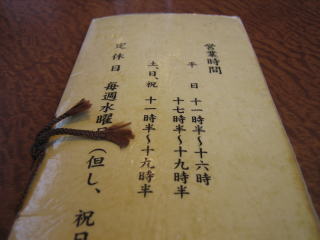 営業時間
平 日 十一時半〜十六時
十七時半〜十九時半
土、日、祝 十一時半〜十九時半
定休日 毎週水曜日（但し、祝日